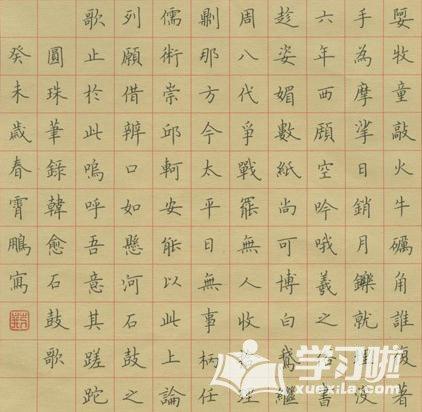 娿牧童敲火牛礪角誰復著
手為摩挲日銷月鑠就沒
六年西顧空吟哦羲之書
趁姿媚數紙尚可博白鵝繼
周八代爭戰罷無人收理
那方今太平日無事柄任
儒術崇邱軻安能以此上論
列願借辨口如懸河石鼓之
歌止於此嗚呼吾意其蹉跎
圓珠筆錄韓愈石鼓歌
癸未歲春霄鵬寫
学习啦
xuexila.com